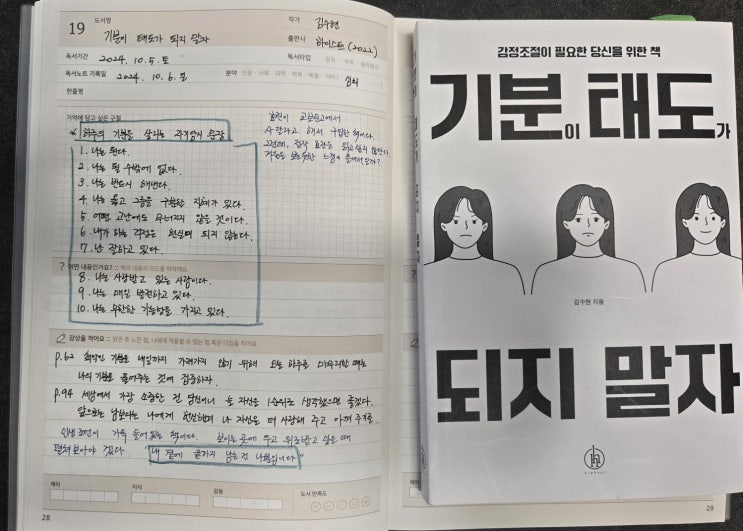 19
도서명
기분이 태도가 되지 말자
작가
김수현
출판사
하이스트 (2022)
독서기간
2024. 10. 5. 토
독서타입
정독 · 속독 · 골라읽기
독서노트 기록일
2024. 10. 6. 일
분야
인문 · 사회 · 과학 · 체육 · 예술 · 기타 (
심리
)
한줄평
기억에 담고 싶은 구절
* 하루의 기분을 살리는 자기암시 문장
1. 나는 된다.
2. 나는 될 수밖에 없다.
3. 나는 반드시 해낸다.
4. 나는 옳고 그름을 구분할 지혜가 있다.
5. 어떤 고난에도 무너지지 않을 것이다.
6. 내가 하는 걱정은 현실이 되지 않는다.
7. 난 잘하고 있다.
교보문고에서
사달라고 해서 구입한 책이다.
? 어떤 내용인가요? :: 책의 내용과 의도를 파악해요.
8. 나는 사랑받고 있는 사람이다.
9. 나는 매일 발전하고 있다.
10. 나는 무한한 가능성을 가지고 있다.
감상을 적어요 :: 읽은 후 느낀 점, 나에게 적용할 수 있는 점 혹은 다짐을 적어요.
p.62 최악인 기분을 내일까지 가져가지 않기 위해 오늘 하루를 마무리할 때는
나의 기분을 풀어주는 것에 집중하자.
p.94 세상에서 가장 소중한 건 당신이니 늘 자신을 1순위로 생각했으면 좋겠다.
앞으로는 남보다는 나에게 헌신하며 나 자신을 더 사랑해 주고 아껴 주기를.
인생 조언이 가득 들어있는 책이다. 보이는 곳에 두고 위로받고 싶을 때
펼쳐보아야 겠다. 내 곁에 끝까지 남는 건 나뿐입니다
재미
지식
감동
도서 만족도
28
29
감정조절이 필요한 당신을 위한 책
기분이 태도가
김수현 지음
되지 말자
highest